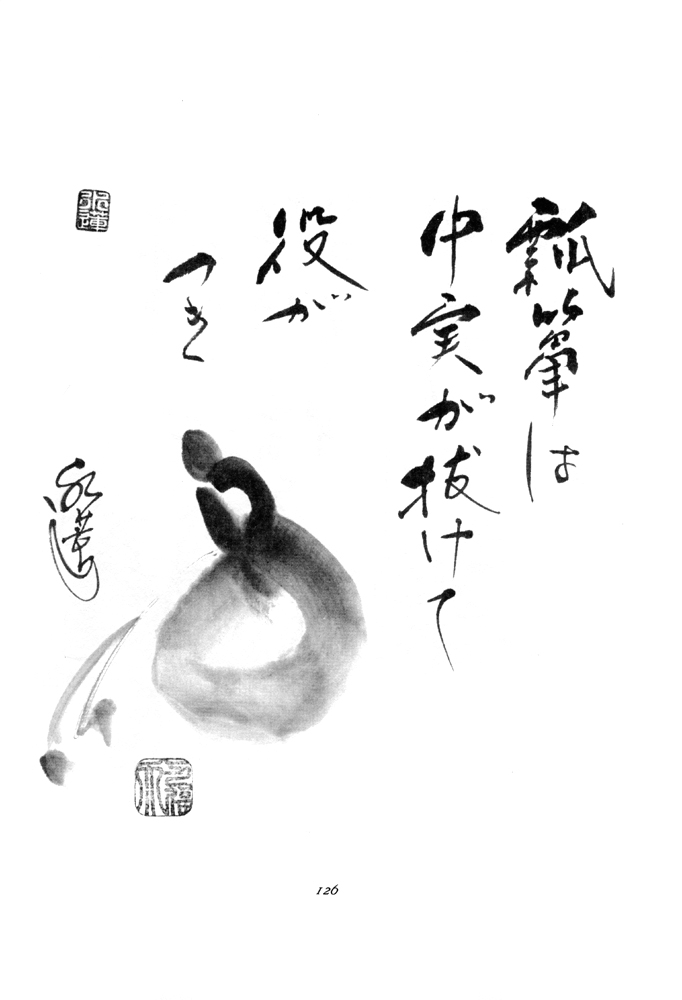 瓢箪は
中実が抜けて
役が
つき
126